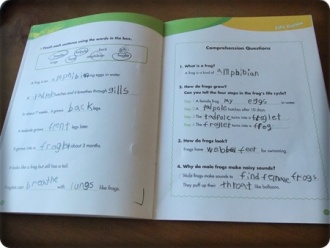 Finish each sentence using the words in the box.
A frog is an amphibian
eggs in water.
A tadpole hatches and it breathes through gills
In about 7 weeks, it grows back legs.
It mostly grows front legs later.
It grows into a froglet about 3 months.
looks like a frog but still has a tail.
breathe with lungs like frogs.
Comprehension Questions
1. What is a frog?
A frog is a kind of amphibian
2. How do frogs grow?
Can you tell the four steps of the frog's life cycle?
Step 1 A female frog my eggs in water.
Step 2 A tadpole hatches after 10 days.
Step 3 The tadpole turns into a froglet
Step 4 The froglet turns into a frog.
3. How do frogs look?
Frogs have webbed feet for swimming.
4. Why do male frogs make noisy sounds?
Male frogs make sounds to find female frogs
They puff up their throat like balloons.